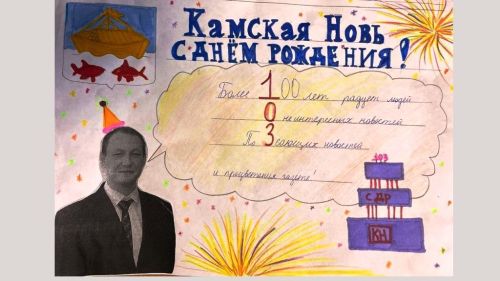 Камская Новь
С ДНЁМ РОЖДЕНИЯ!
Более 100 лет радует людей
0 неинтересных новостей
По 3сающих новостей
и процветания газете!
103
С ДР
КН